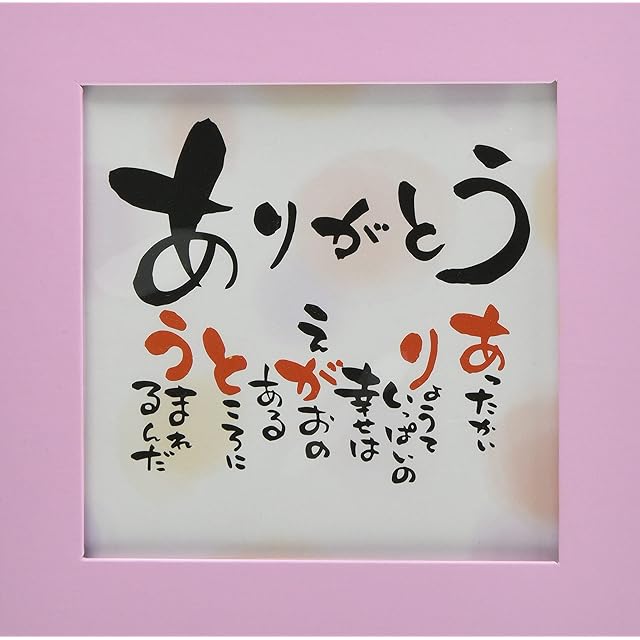 ありがとう
あったかい
りょうて
いっぱいの
幸せは
えがおの
ある
ところに
うまれ
るんだ